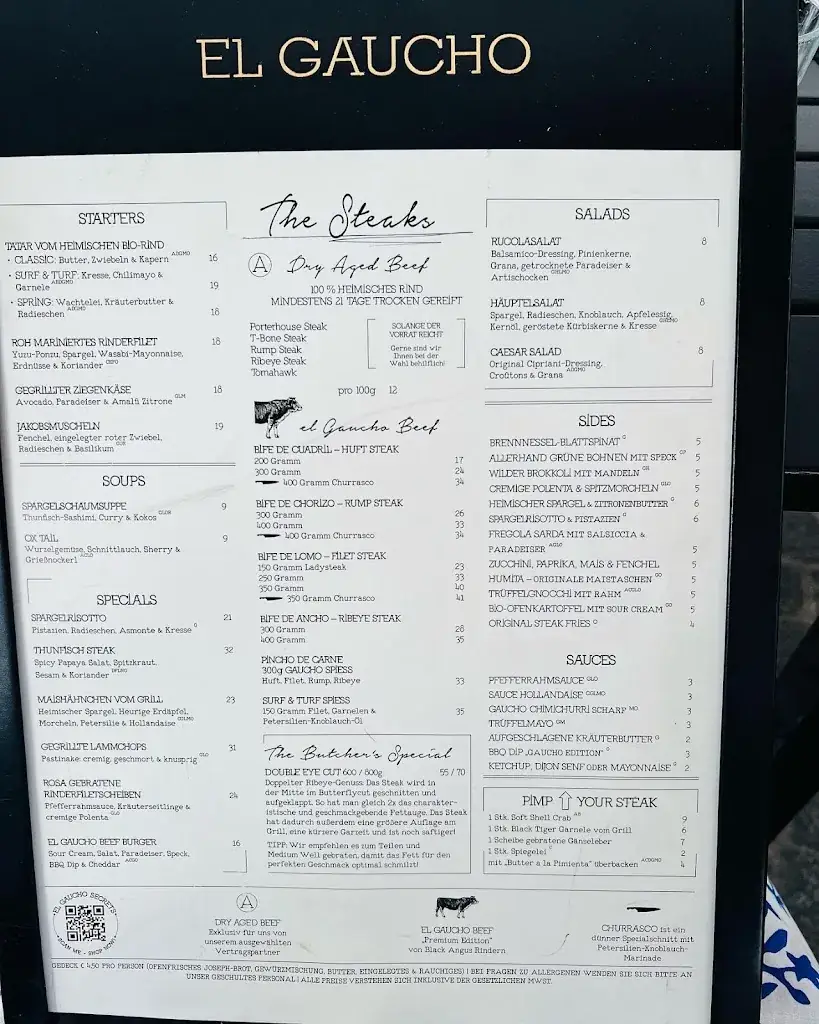 EL GAUCHO
STARTERS
TATAR VOM HEIMISCHEN BIO-RIND
• CLASSIC: Butter, Zwiebeln & Kapern ADGMO 16
• SURF & TURF: Kresse, Chilimayo &
Garnele ABDGMO 19
• SPRING: Wachtelei, Kräuterbutter &
Radieschen ADGMO 18
ROH MARINIERTES RINDERFILET 18
Yuzu-Ponzu, Spargel, Wasabi-Mayonnaise,
Erdnüsse & Koriander
GEGRILLTER ZIEGENKÄSE 18
Avocado, Paradeiser & Amalfi Zitrone GLM
JAKOBSMUSCHELN 19
Fenchel, eingelegter roter Zwiebel,
Radieschen & Basilikum
SOUPS
SPARGELSCHAUMSUPPE 9
Thunfisch-Sashimi, Curry & Kokos
OX TAIL 9
Wurzelgemüse, Schnittlauch, Sherry &
Grießnockerl ACGLO
SPECIALS
SPARGELRISOTTO 21
Pistazien, Radieschen, Asmonte & Kresse G
THUNFISCH STEAK 32
Spicy Papaya Salat, Spitzkraut,
Sesam & Koriander DFLMO
MAISHÄHNCHEN VOM GRILL 23
Heimischer Spargel, Heurige Erdäpfel,
Morcheln, Petersilie & Hollandaise CGLMO
GEGRILLTE LAMMCHOPS 31
Pastinake: cremig, geschmort & knusprig GLO
ROSA GEBRATENE
RINDERFILETSCHEIBEN 24
Pfefferrahmsauce, Kräuterseitlinge &
cremige Polenta GLO
EL GAUCHO BEEF BURGER 16
Sour Cream, Salat, Paradeiser, Speck,
BBQ Dip & Cheddar ACGLO
The Steaks
A Dry Aged Beef
100 % HEIMISCHES RIND
MINDESTENS 21 TAGE TROCKEN GEREIFT
Porterhouse Steak
T-Bone Steak
Rump Steak
Ribeye Steak
Tomahawk
SOLANGE DER
VORRAT REICHT
Gerne sind wir
Ihnen bei der
Wahl behilflich!
pro 100g 12
el Gaucho Beef
BIFE DE CUADRIL – HUFT STEAK
200 Gramm 17
300 Gramm 24
400 Gramm Churrasco 34
BIFE DE CHORIZO – RUMP STEAK
300 Gramm 26
400 Gramm 33
400 Gramm Churrasco 34
BIFE DE LOMO – FILET STEAK
150 Gramm Ladysteak 23
250 Gramm 33
350 Gramm 40
350 Gramm Churrasco 41
BIFE DE ANCHO – RIBEYE STEAK
300 Gramm 28
400 Gramm 35
PINCHO DE CARNE
300g GAUCHO SPIESS
Huft, Filet, Rump, Ribeye 33
SURF & TURF SPIESS
150 Gramm Filet, Garnelen & 35
Petersilien-Knoblauch-Öl
The Butcher's Special
DOUBLE EYE CUT 600 / 800g 55 / 70
Doppelter Ribeye-Genuss: Das Steak wird in
der Mitte im Butterflycut geschnitten und
aufgeklappt. So hat man gleich 2x das charakter-
istische und geschmackgebende Fettauge. Das Steak
hat dadurch außerdem eine größere Auflage am
Grill, eine kürzere Garzeit und ist noch saftiger!
TIPP: Wir empfehlen es zum Teilen und
Medium Well gebraten, damit das Fett für den
perfekten Geschmack optimal schmilzt!
SALADS
RUCOLASALAT 8
Balsamico-Dressing, Pinienkerne,
Grana, getrocknete Paradeiser &
Artischocken
HÄUPTELSALAT 8
Spargel, Radieschen, Knoblauch, Apfelessig,
Kernöl, geröstete Kürbiskerne & Kresse
CAESAR SALAD 8
Original Cipriani-Dressing,
Croûtons & Grana ADGMO
SIDES
BRENNNESSEL-BLATTSPINAT G 5
ALLERHAND GRÜNE BOHNEN MIT SPECK 5
WILDER BROKKOLI MIT MANDELN GH 5
CREMIGE POLENTA & SPITZMORCHELN GLO 5
HEIMISCHER SPARGEL & ZITRONENBUTTER G 6
SPARGELRISOTTO & PISTAZIEN G 6
FREGOLA SARDA MIT SALSICCIA &
PARADEISER ACLO 5
ZUCCHINI, PAPRIKA, MAIS & FENCHEL 5
HUMITA – ORIGINALE MAISTASCHEN GO 5
TRÜFFELGNOCCHI MIT RAHM ACGLO 5
BIO-OFENKARTOFFEL MIT SOUR CREAM GO 5
ORIGINAL STEAK FRIES O 4
SAUCES
PFEFFERRAHMSAUCE GLO 3
SAUCE HOLLANDAISE CGLMO 3
GAUCHO CHIMICHURRI SCHARF MO 3
TRÜFFELMAYO GM 3
AUFGESCHLAGENE KRÄUTERBUTTER G 2
BBQ DIP „GAUCHO EDITION" G 3
KETCHUP, DIJON SENF ODER MAYONNAISE G 2
PIMP YOUR STEAK
1 Stk. Soft Shell Crab AB 9
1 Stk. Black Tiger Garnele vom Grill 6
1 Scheibe gebratene Gänseleber 7
1 Stk. Spiegelei C 2
mit „Butter a la Pimienta" überbacken ACGMO 4
EL GAUCHO SECRETS
SCAN ME - SHOP NOW!
A
DRY AGED BEEF
Exklusiv für uns von
unserem ausgewählten
Vertragspartner
EL GAUCHO BEEF
„Premium Edition"
von Black Angus Rindern
CHURRASCO ist ein
dünner Specialschnitt mit
Petersilien-Knoblauch-
Marinade
GEDECK € 4,50 PRO PERSON (OFENFRISCHES JOSEPH-BROT, GEWÜRZMISCHUNG, BUTTER, EINGELEGTES & RAUCHIGES) | BEI FRAGEN ZU ALLERGENEN WENDEN SIE SICH BITTE AN
UNSER GESCHULTES PERSONAL | ALLE PREISE VERSTEHEN SICH INKLUSIVE DER GESETZLICHEN MWST.